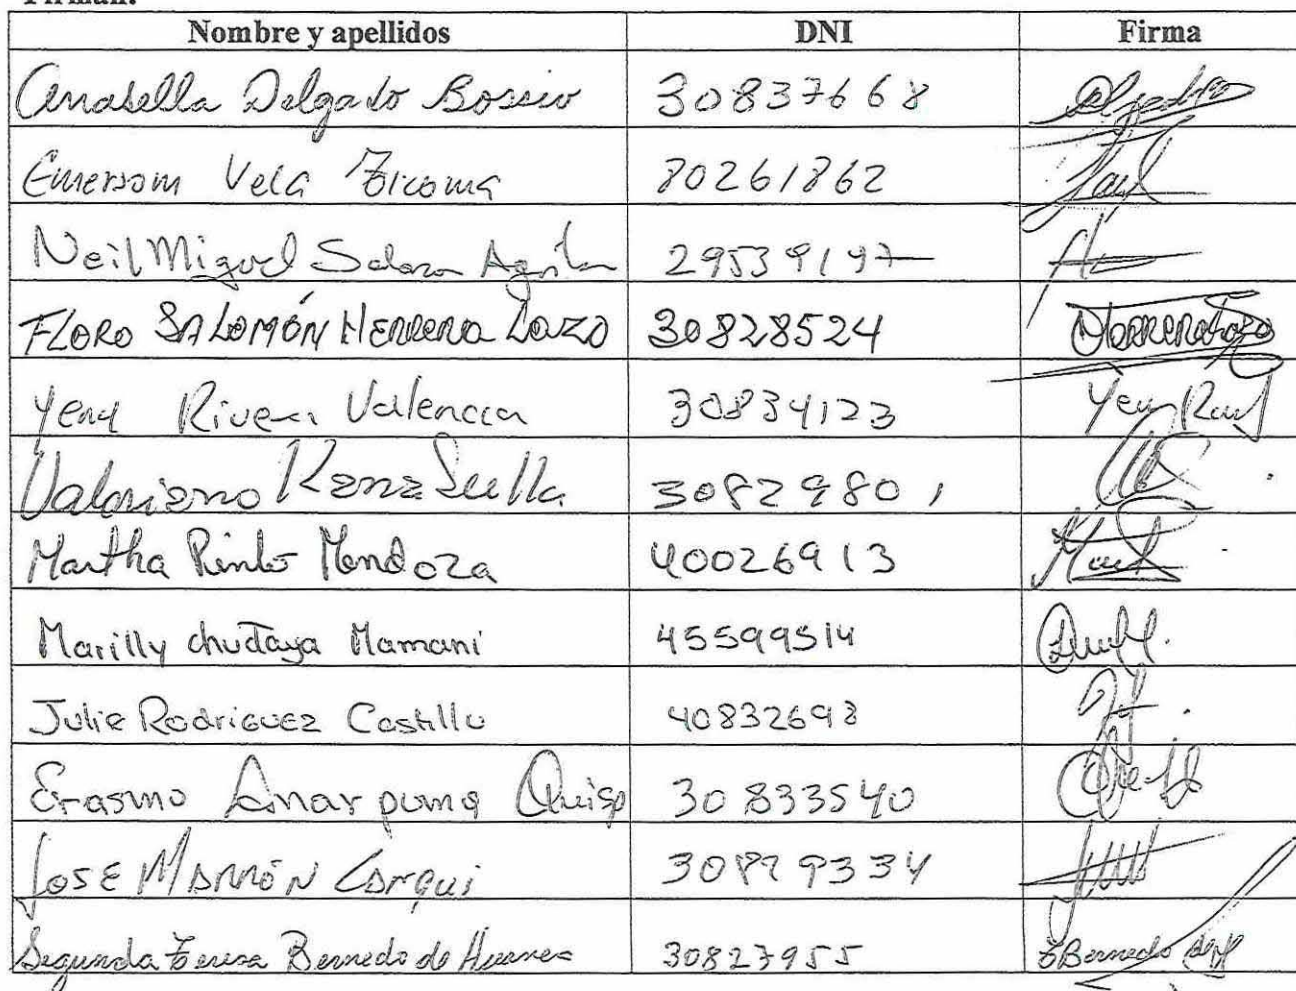 Firman:
Nombre y apellidos DNI Firma
Anabella Delgado Bossio 30837668
Emerson Vela Ticoma 80261862
Neil Miguel Salazar Aguilar 29539197
FLORO SALOMÓN HERRERA LAZO 30828524 Herrera Lazo
Yeny Rivera Valencia 30834123 Yeny
Valeriano 30829801
Martha Pinto Mendoza 40026913
Marilly chutaya Mamani 45599514
Julia Rodriguez Castillo 40832698
Erasmo puma Quisp 30833540
JOSE MARRÓN CARQUI 30829334
Segunda Teresa Bernedo de 30827955 T Bernedo de H